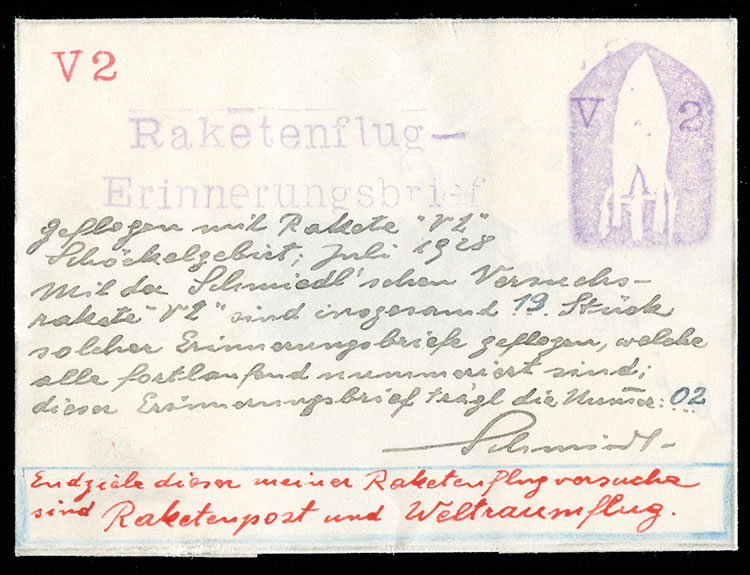 V2
V 2
Raketenflug-
Erinnerungsbrief
geflogen mit Rakete "V2"
Schöckelgebiet, Juli 1928
Mit der Schmiedl'schen Versuchs-
rakete "V2" sind insgesamt 19. Stück
solcher Erinnerungsbriefe geflogen, welche
alle fortlaufend nummeriert sind;
dieser Erinnerungsbrief trägt die Num̄er: 02
Schmiedl
Endziele dieser meiner Raketenflugversuche
sind Raketenpost und Weltraumflug.